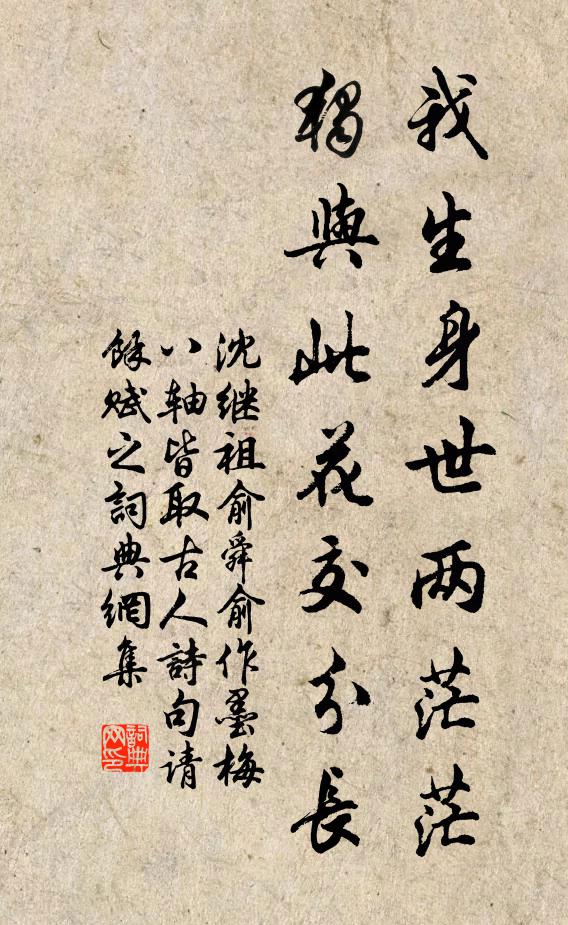 我生身世两茫茫
獨與此花交分長
沈继祖俞舜俞作墨梅
八轴皆取古人詩句请
餘赋之詞典網集
詞典
网印